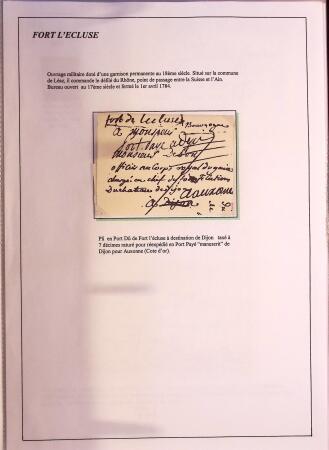 FORT L'ECLUSE
Ouvrage militaire doté d'une garnison permanente au 18ème siècle. Situé sur la commune
de Léaz, il commande le défilé du Rhône, point de passage entre la Suisse et l'Ain.
Bureau ouvert au 17ème siècle et fermé le 1er avril 1784.
fort de Lecluse
Bourgogne
A Monsieur
Port Paye a Dijon
Monsieur
officier au Corps royal du genie
en chef
du chateau de Dijon
auxonne
a Dijon
Pli en Port Dû de Fort l'écluse à destination de Dijon taxé à
7 décimes raturé pour réexpédié en Port Payé "manuscrit" de
Dijon pour Auxonne (Cote d'or).